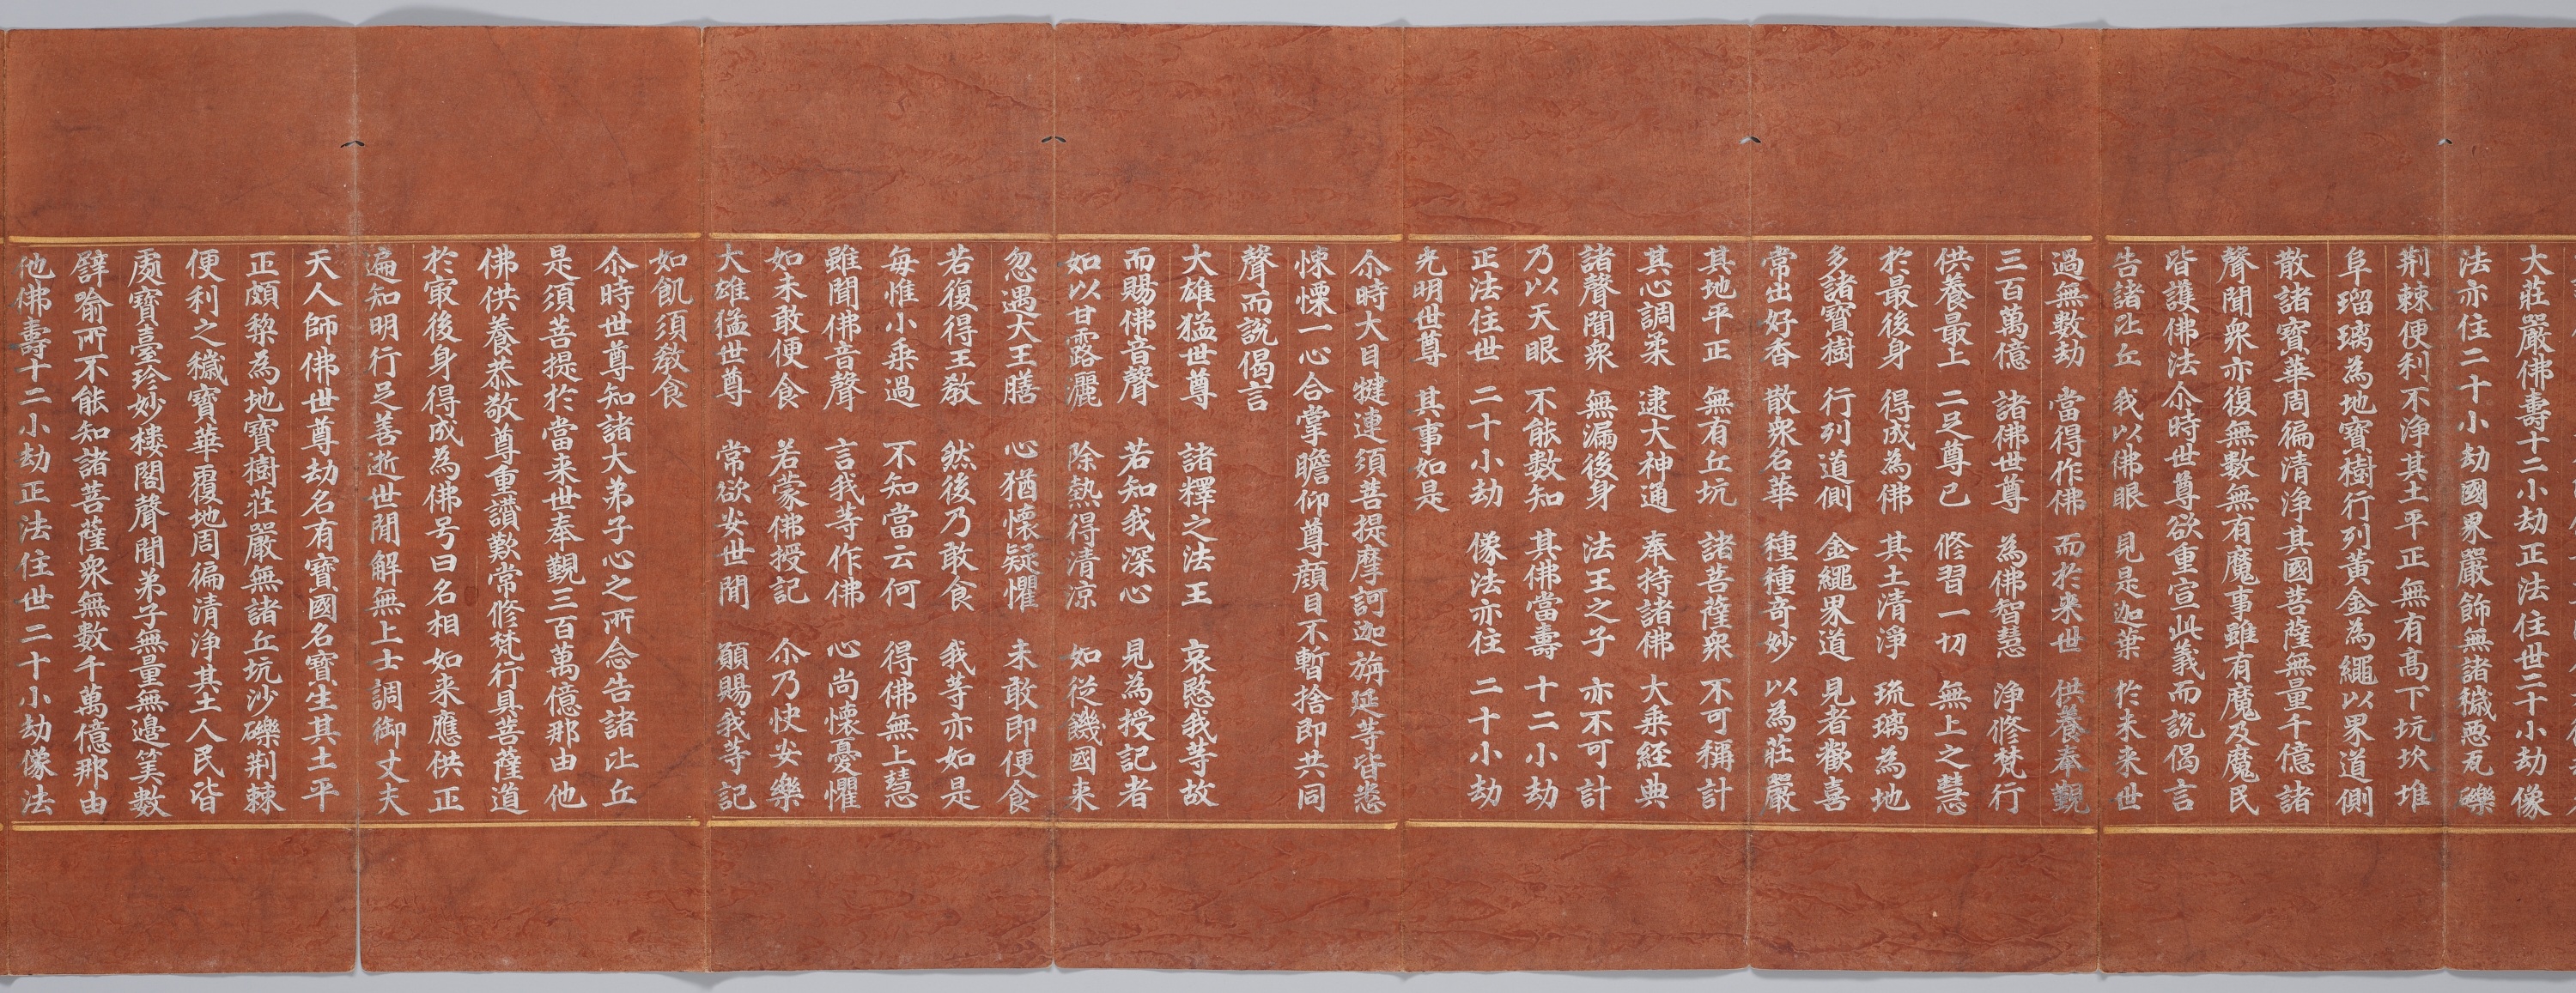 大莊嚴佛壽十二小劫正法住世二十小劫像
法亦住二十小劫國界嚴飾無諸穢惡瓦礫
荆棘便利不淨其土平正無有髙下坑坎堆
阜瑠璃為地寶樹行列黃金為繩以界道側
散諸寶華周徧清淨其國菩薩無量千億諸
聲聞衆亦復無數無有魔事雖有魔及魔民
皆護佛法尒時世尊欲重宣此義而說偈言
告諸比丘　我以佛眼　見是迦葉　於未来世
過無數劫　當得作佛　而於来世　供養奉覲
三百萬億　諸佛世尊　為佛智慧　淨修梵行
供養最上　二足尊已　修習一切　無上之慧
於最後身　得成為佛　其土清淨　琉璃為地
多諸寶樹　行列道側　金繩界道　見者歡喜
常出好香　散衆名華　種種奇妙　以為莊嚴
其地平正　無有丘坑　諸菩薩衆　不可稱計
其心調柔　逮大神通　奉持諸佛　大乘経典
諸聲聞衆　無漏後身　法王之子　亦不可計
乃以天眼　不能数知　其佛當壽　十二小劫
正法住世　二十小劫　像法亦住　二十小劫
光明世尊　其事如是
尒時大目揵連須菩提摩訶迦旃延等皆悉
悚慄一心合掌瞻仰尊顔目不暫捨即共同
聲而說偈言
大雄猛世尊　諸釋之法王　哀愍我等故
而賜佛音聲　若知我深心　見為授記者
如以甘露灑　除熱得清涼　如従饑國来
忽遇大王膳　心猶懷疑懼　未敢即便食
若復得王教　然後乃敢食　我等亦如是
每惟小乘過　不知當云何　得佛無上慧
雖聞佛音聲　言我等作佛　心尚懷憂懼
如未敢便食　若蒙佛授記　尒乃快安樂
大雄猛世尊　常欲安世間　願賜我等記
如飢須教食
尒時世尊知諸大弟子心之所念告諸比丘
是須菩提於當来世奉覲三百萬億那由他
佛供養恭敬尊重讃歎常修梵行具菩薩道
於㝡後身得成為佛号曰名相如来應供正
遍知明行足善逝世間解無上士調御丈夫
天人師佛世尊劫名有寶國名寶生其土平
正頗黎為地寶樹莊嚴無諸丘坑沙礫荆棘
便利之穢寶華覆地周徧清淨其土人民皆
處寶臺珍妙樓閣聲聞弟子無量無邊筭數
譬喻所不能知諸菩薩衆無數千萬億那由
他佛壽十二小劫正法住世二十小劫像法